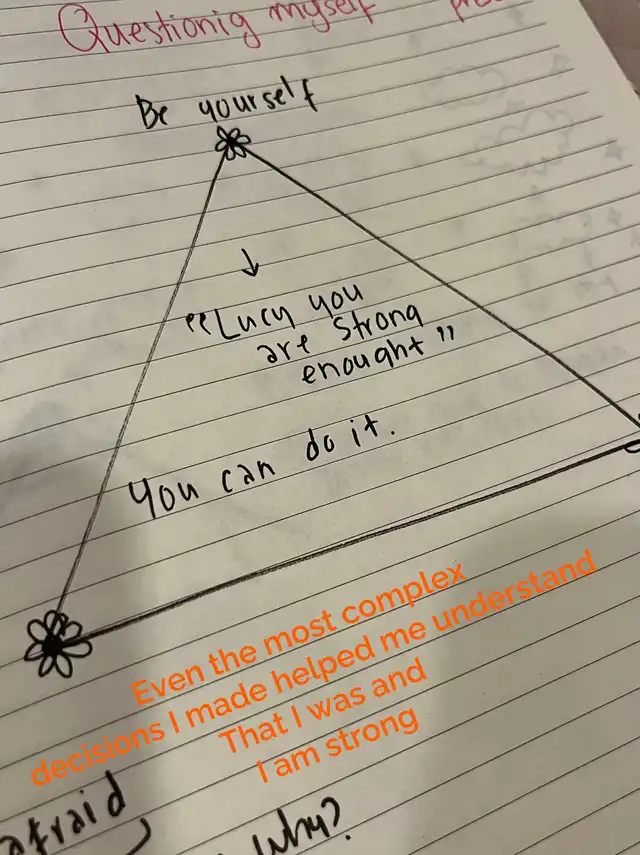 Questionig myself
Be yourself
↓
"Lucy you
are strong
enought"
You can do it.
Even the most complex
decisions I made helped me understand
That I was and
I am strong
afraid
Why?